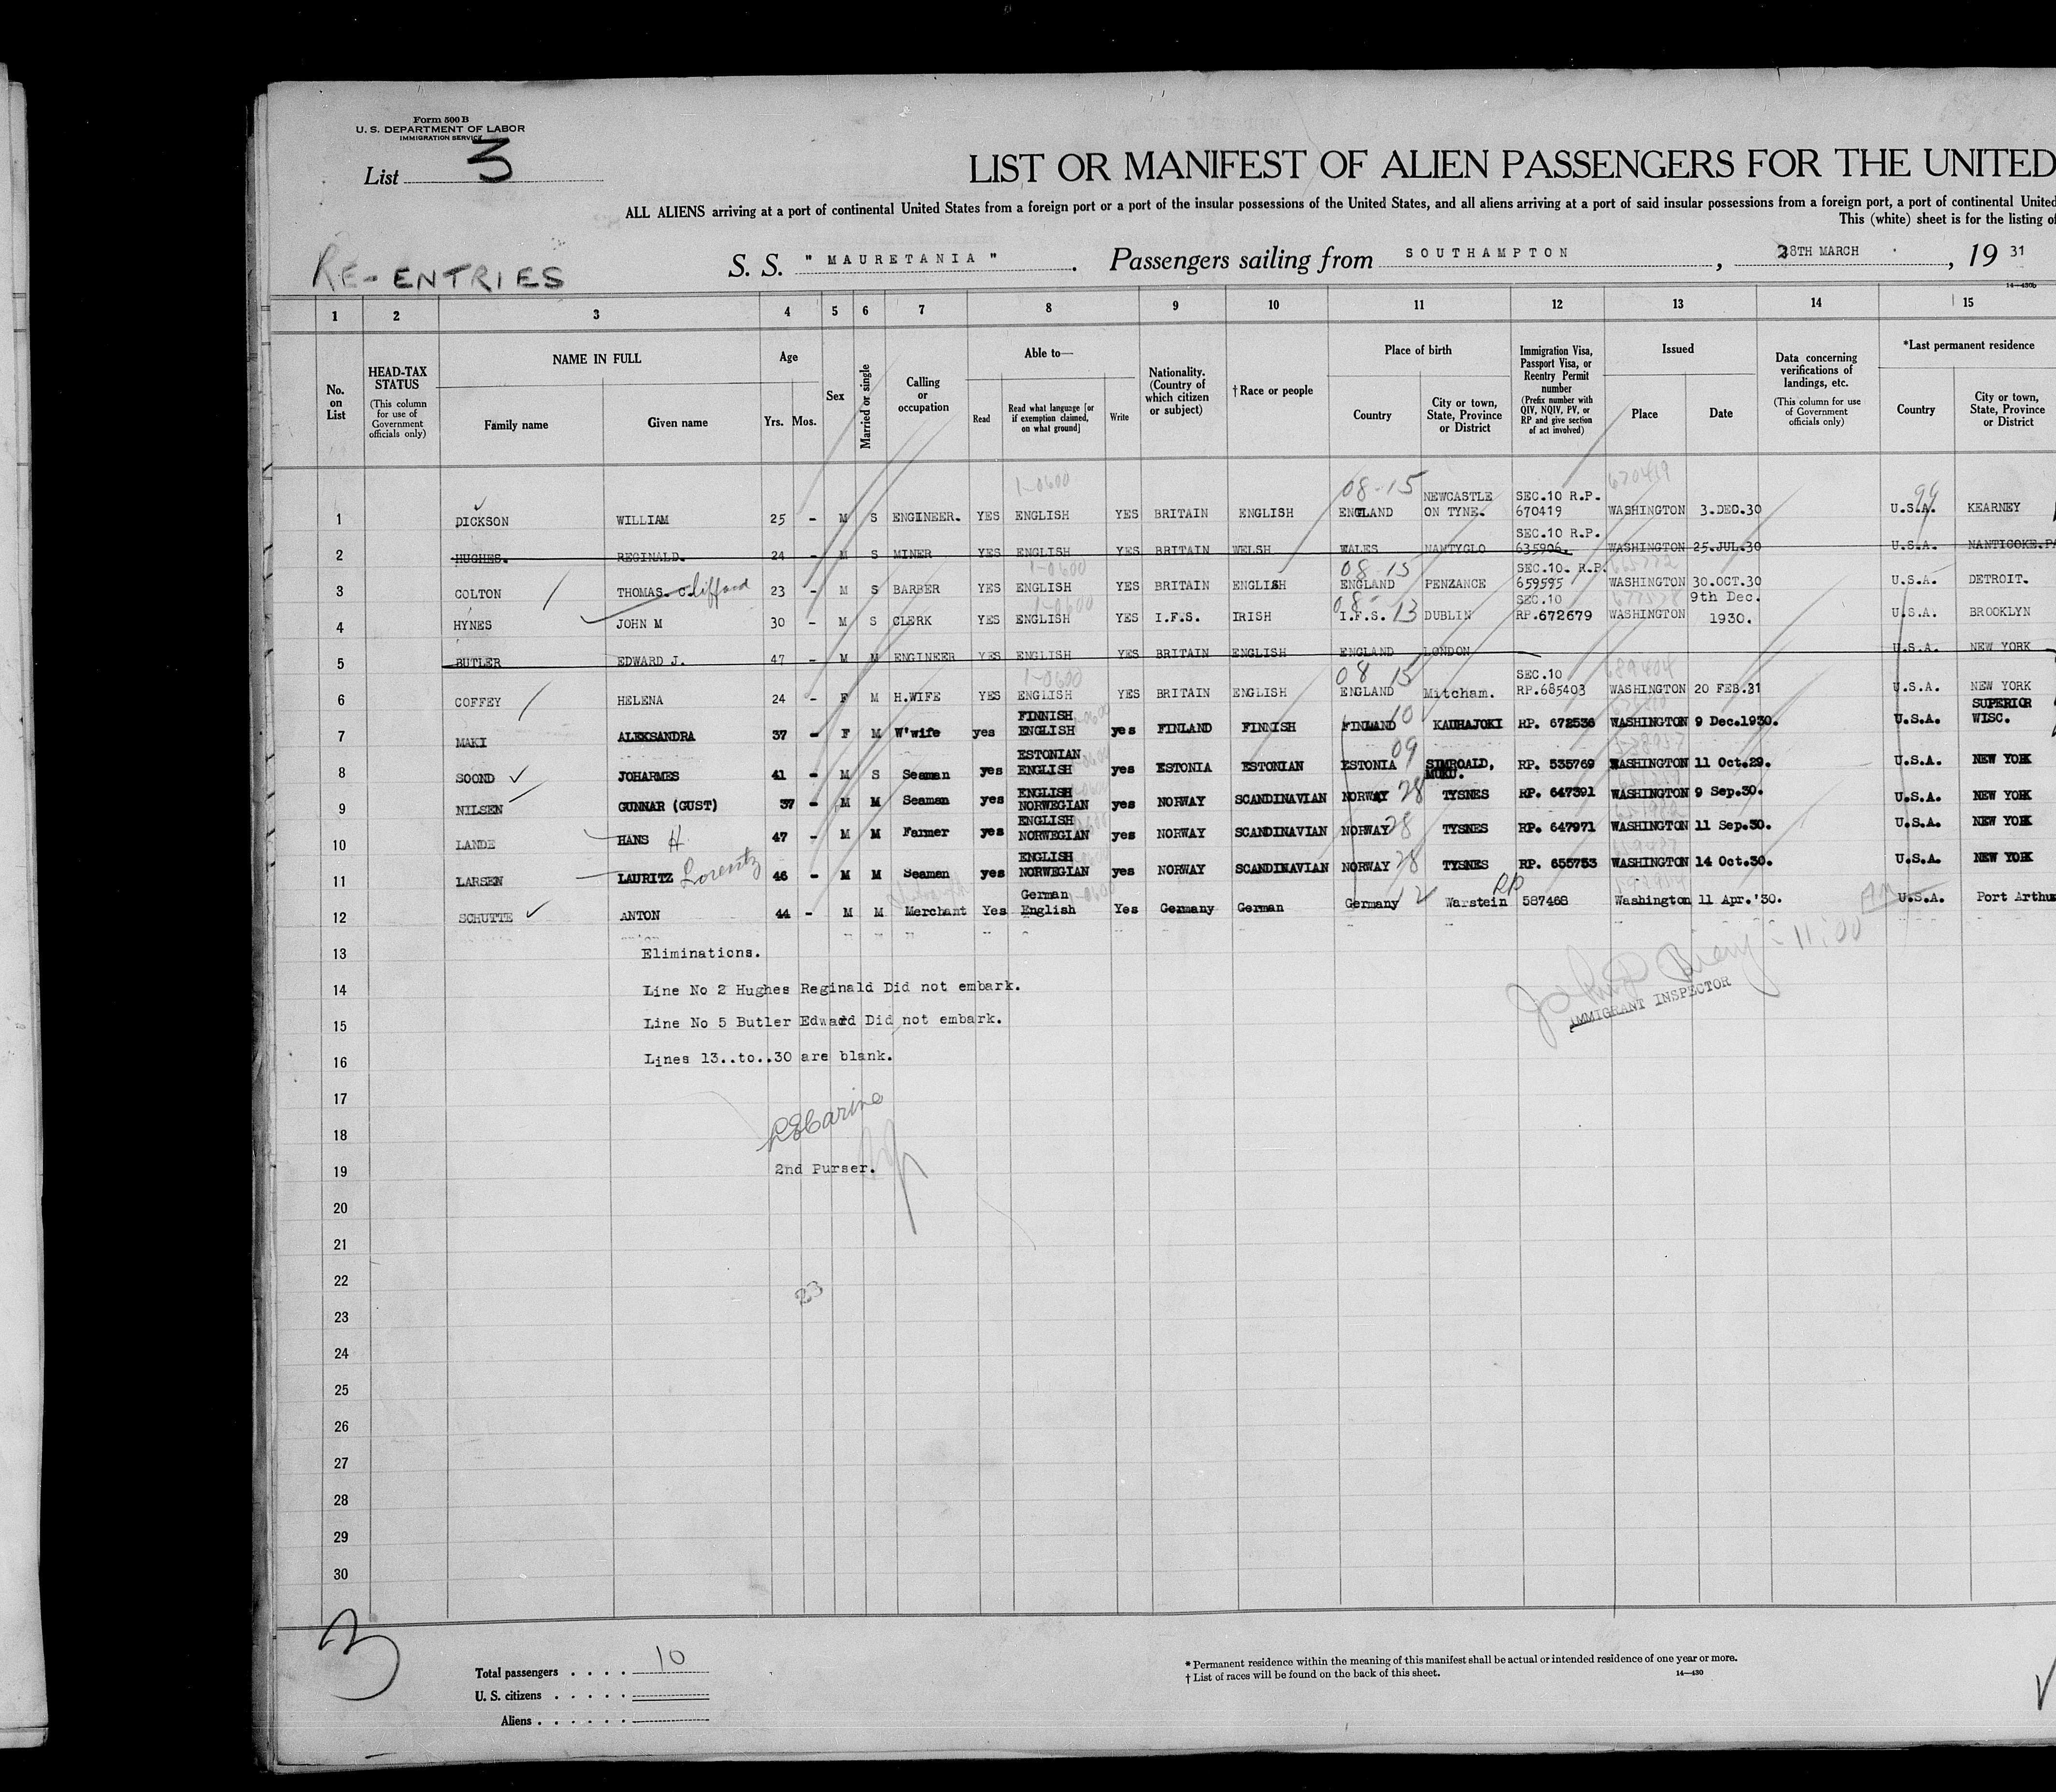 Form 500 B
U. S. DEPARTMENT OF LABOR
IMMIGRATION SERVICE
List 3
LIST OR MANIFEST OF ALIEN PASSENGERS FOR THE UNITED
ALL ALIENS arriving at a port of continental United States from a foreign port or a port of the insular possessions of the United States, and all aliens arriving at a port of said insular possessions from a foreign port, a port of continental United
This (white) sheet is for the listing of
RE-ENTRIES
S. S. " MAURETANIA " . Passengers sailing from SOUTHAMPTON , 28TH MARCH , 19 31
14—430b
1 2 3 4 5 6 7 8 9 10 11 12 13 14 15
No. on List
HEAD-TAX STATUS
(This column for use of Government officials only)
NAME IN FULL
Family name Given name
Age
Yrs. Mos.
Sex
Married or single
Calling or occupation
Able to—
Read
Read what language [or if exemption claimed, on what ground]
Write
Nationality. (Country of which citizen or subject)
†Race or people
Place of birth
Country
City or town, State, Province or District
Immigration Visa, Passport Visa, or Reentry Permit number
(Prefix number with QIV, NQIV, PV, or RP and give section of act involved)
Issued
Place Date
Data concerning verifications of landings, etc.
(This column for use of Government officials only)
*Last permanent residence
Country
City or town, State, Province or District
1-0600 08-15 670419 99
1 DICKSON WILLIAM 25 - M S ENGINEER. YES ENGLISH YES BRITAIN ENGLISH ENGLAND NEWCASTLE ON TYNE. SEC.10 R.P. 670419 WASHINGTON 3.DEC.30 U.S.A. KEARNEY
2 HUGHES. REGINALD. 24 - M S MINER YES ENGLISH YES BRITAIN WELSH WALES NANTYGLO SEC.10 R.P. 635906. WASHINGTON 25.JUL.30 U.S.A. NANTICOKE.PA
1-0600 08-15
3 COLTON THOMAS. Clifford 23 - M S BARBER YES ENGLISH YES BRITAIN ENGLISH ENGLAND PENZANCE SEC.10. R.P. 659595 WASHINGTON 30.OCT.30 U.S.A. DETROIT.
1-0600 08- 13
4 HYNES JOHN M 30 - M S CLERK YES ENGLISH YES I.F.S. IRISH I.F.S. DUBLIN SEC.10 RP.672679 WASHINGTON 9th Dec. 1930. U.S.A. BROOKLYN
5 BUTLER EDWARD J. 47 - M M ENGINEER YES ENGLISH YES BRITAIN ENGLISH ENGLAND LONDON U.S.A. NEW YORK
1-0600 08 15 689404
6 COFFEY HELENA 24 - F M H.WIFE YES ENGLISH YES BRITAIN ENGLISH ENGLAND Mitcham. SEC.10 RP.685403 WASHINGTON 20 FEB.31 U.S.A. NEW YORK
7 MAKI ALEKSANDRA 37 - F M W'wife yes FINNISH ENGLISH yes FINLAND FINNISH FINLAND 10 KAUHAJOKI RP. 672536 WASHINGTON 9 Dec.1930. U.S.A. SUPERIOR WISC.
8 SOOND JOHARMES 41 - M S Seaman yes ESTONIAN ENGLISH yes ESTONIA ESTONIAN ESTONIA 09 SIMROALD, MUKU. RP. 535769 WASHINGTON 11 Oct.29. U.S.A. NEW YORK
9 NILSEN GUNNAR (GUST) 37 - M M Seaman yes ENGLISH NORWEGIAN yes NORWAY SCANDINAVIAN NORWAY 28 TYSNES RP. 647391 WASHINGTON 9 Sep.30. U.S.A. NEW YORK
10 LANDE HANS H 47 - M M Farmer yes ENGLISH NORWEGIAN yes NORWAY SCANDINAVIAN NORWAY 28 TYSNES RP. 647971 WASHINGTON 11 Sep.30. U.S.A. NEW YORK
11 LARSEN LAURITZ Lorentz 46 - M M Seaman yes ENGLISH NORWEGIAN yes NORWAY SCANDINAVIAN NORWAY 28 TYSNES RP. 655753 WASHINGTON 14 Oct.30. U.S.A. NEW YORK
12 SCHUTTE ANTON 44 - M M Merchant Yes German English Yes Germany German Germany 12 Warstein RP 587468 Washington 11 Apr.'30. U.S.A. Port Arthur
13 Eliminations.
14 Line No 2 Hughes Reginald Did not embark.
IMMIGRANT INSPECTOR
11:00
15 Line No 5 Butler Edward Did not embark.
16 Lines 13..to..30 are blank.
17
18
19 2nd Purser.
20
21
22
23
23
24
25
26
27
28
29
30
3
Total passengers . . . . 10
U. S. citizens . . . . .
Aliens . . . . . .
* Permanent residence within the meaning of this manifest shall be actual or intended residence of one year or more.
† List of races will be found on the back of this sheet.
14—430